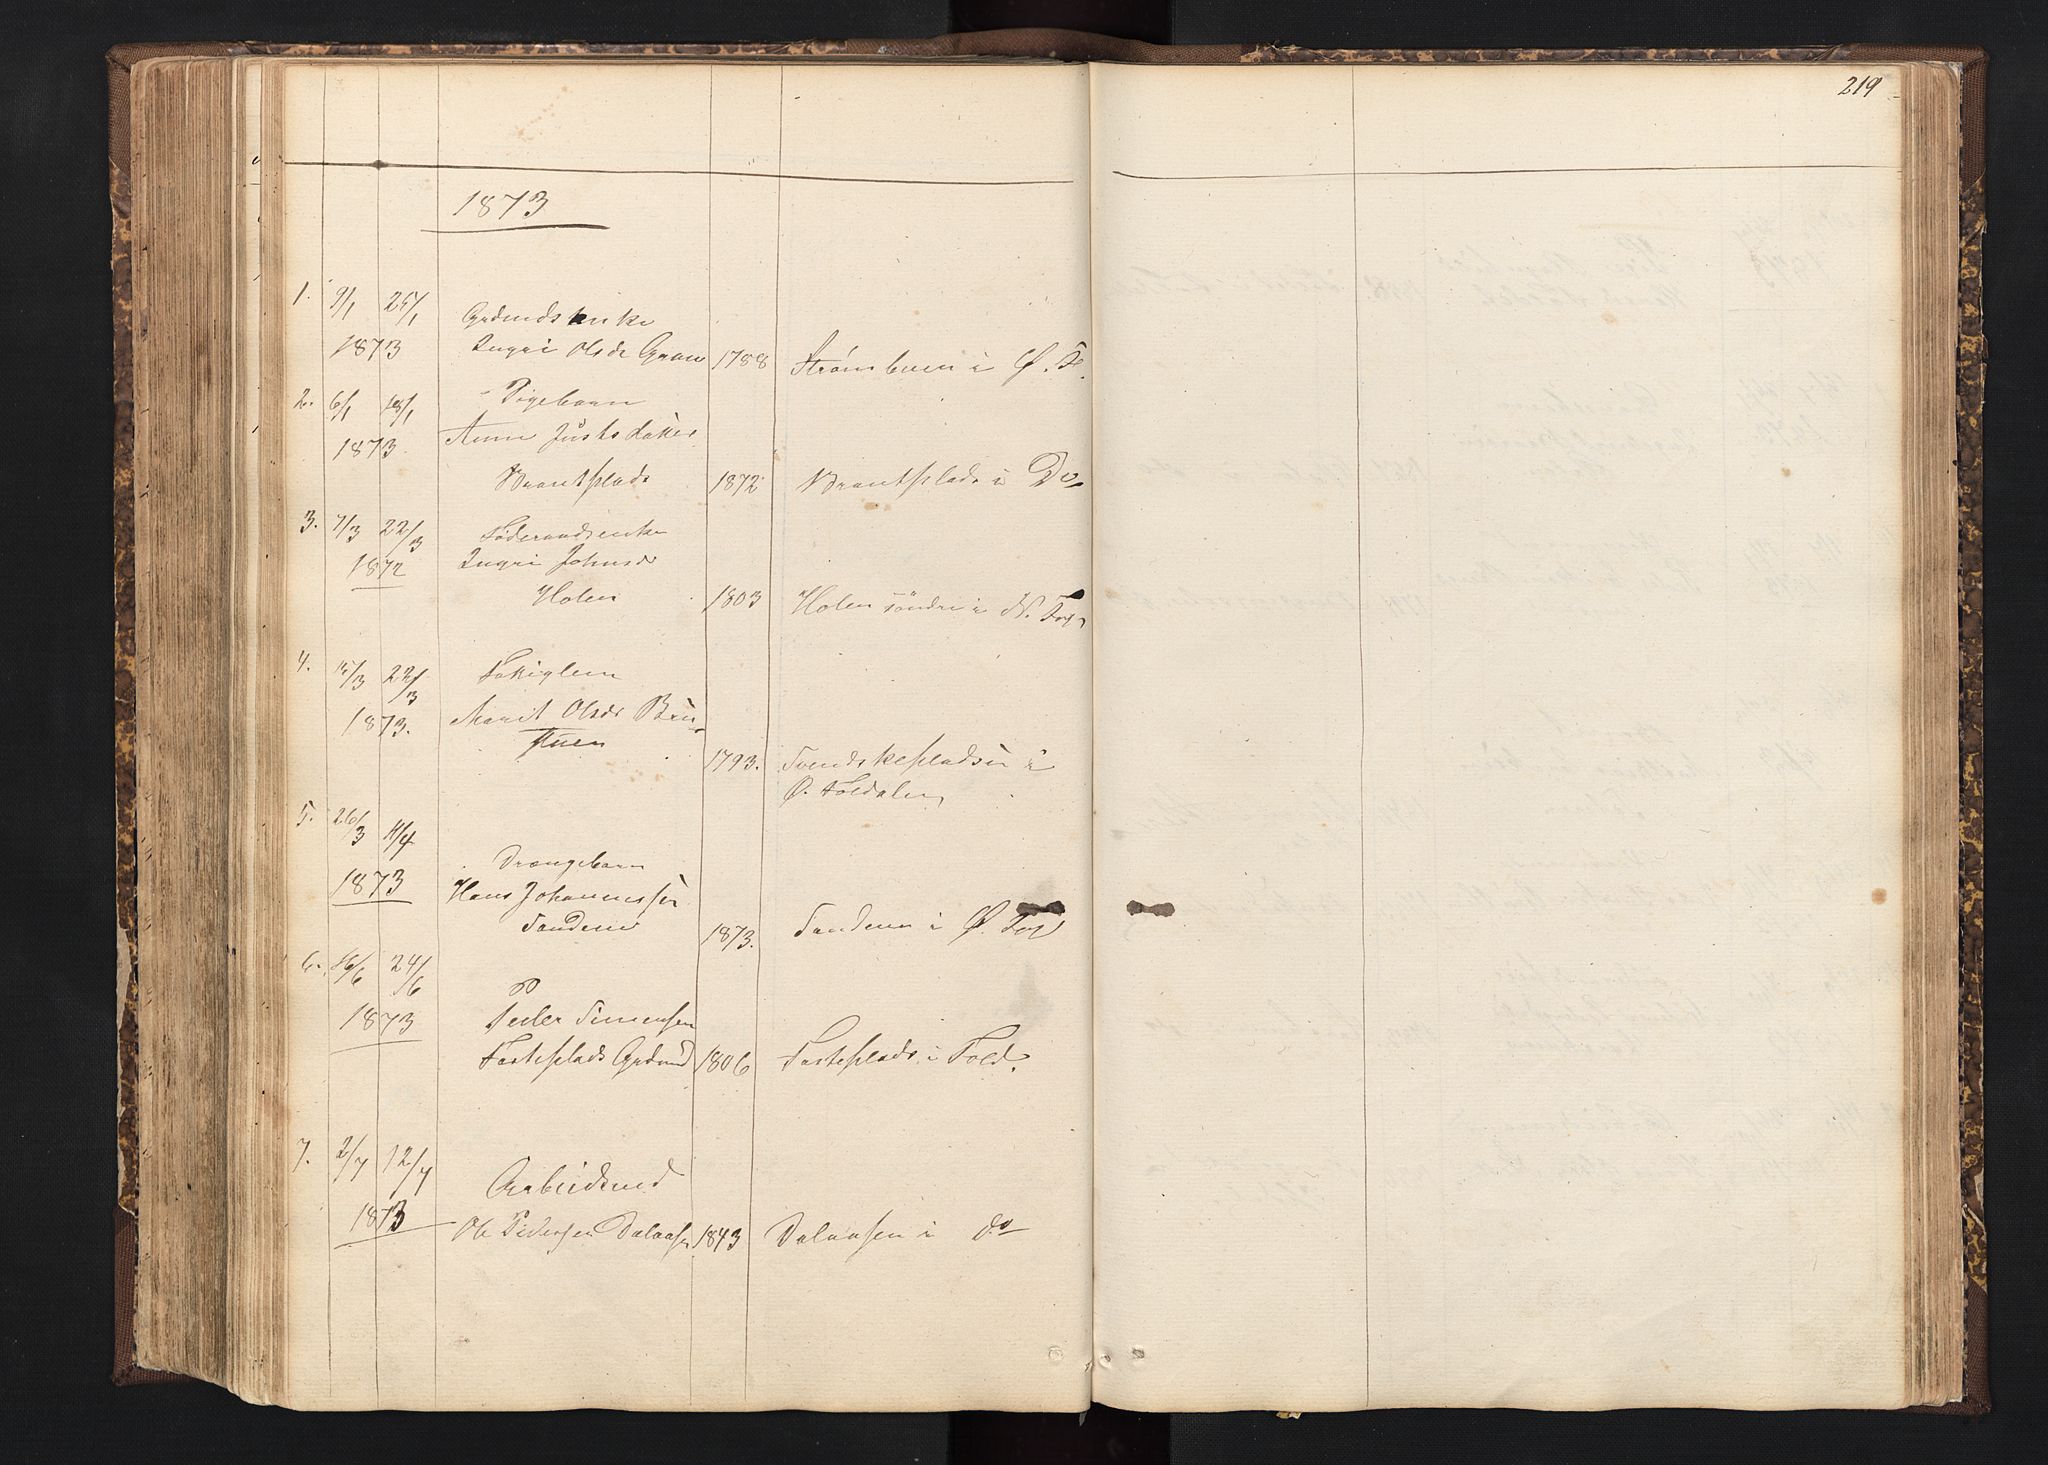 219
1873
1. 9/1 25/1 Grdmdsenke
1873 Ingri Olsdr Gran 1788 Strømbuen i Ø. F.
2. 6/1 18/1 Pigebarn
1873 Anne Justsdatter
Brantsplads 1872 Brantsplads i Do
3. 7/3 22/3 Føderaadsenke
1872 Ingri Johnsdr
Holen 1803 Holen söndre i N. Fol
4. 15/3 22/3
1873. Marit Olsdr Brü-
stuen
1793. Svendskepladsen i
Ø. Foldalen
5. 26/3 4/4
Drængebarn
1873 Hans Johannessen
Sanden 1873. Sanden i Ø. Fol
6. 16/6 24/6
1873 Peder Simensen
1806 i Fold.
7. 2/7 12/7 Arbeidsmd
1873 Ole Pedersen Dalaasen 1843 Dalaasen i do